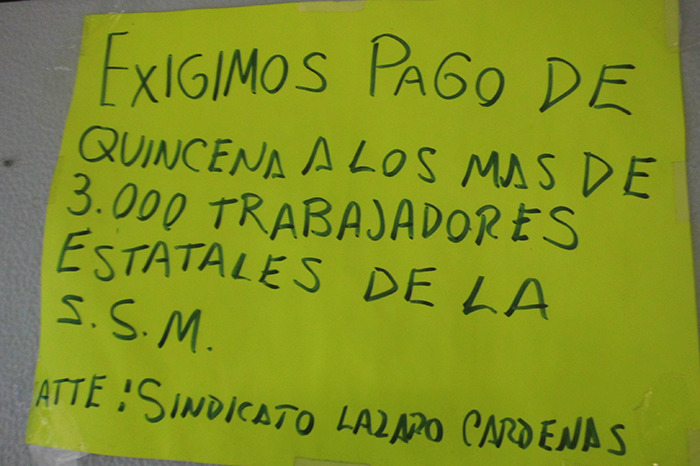 EXIGIMOS PAGO DE
QUINCENA A LOS MAS DE
3.000 TRABAJADORES
ESTATALES DE LA
S.S.M.
ATTE: SINDICATO LAZARO CARDENAS